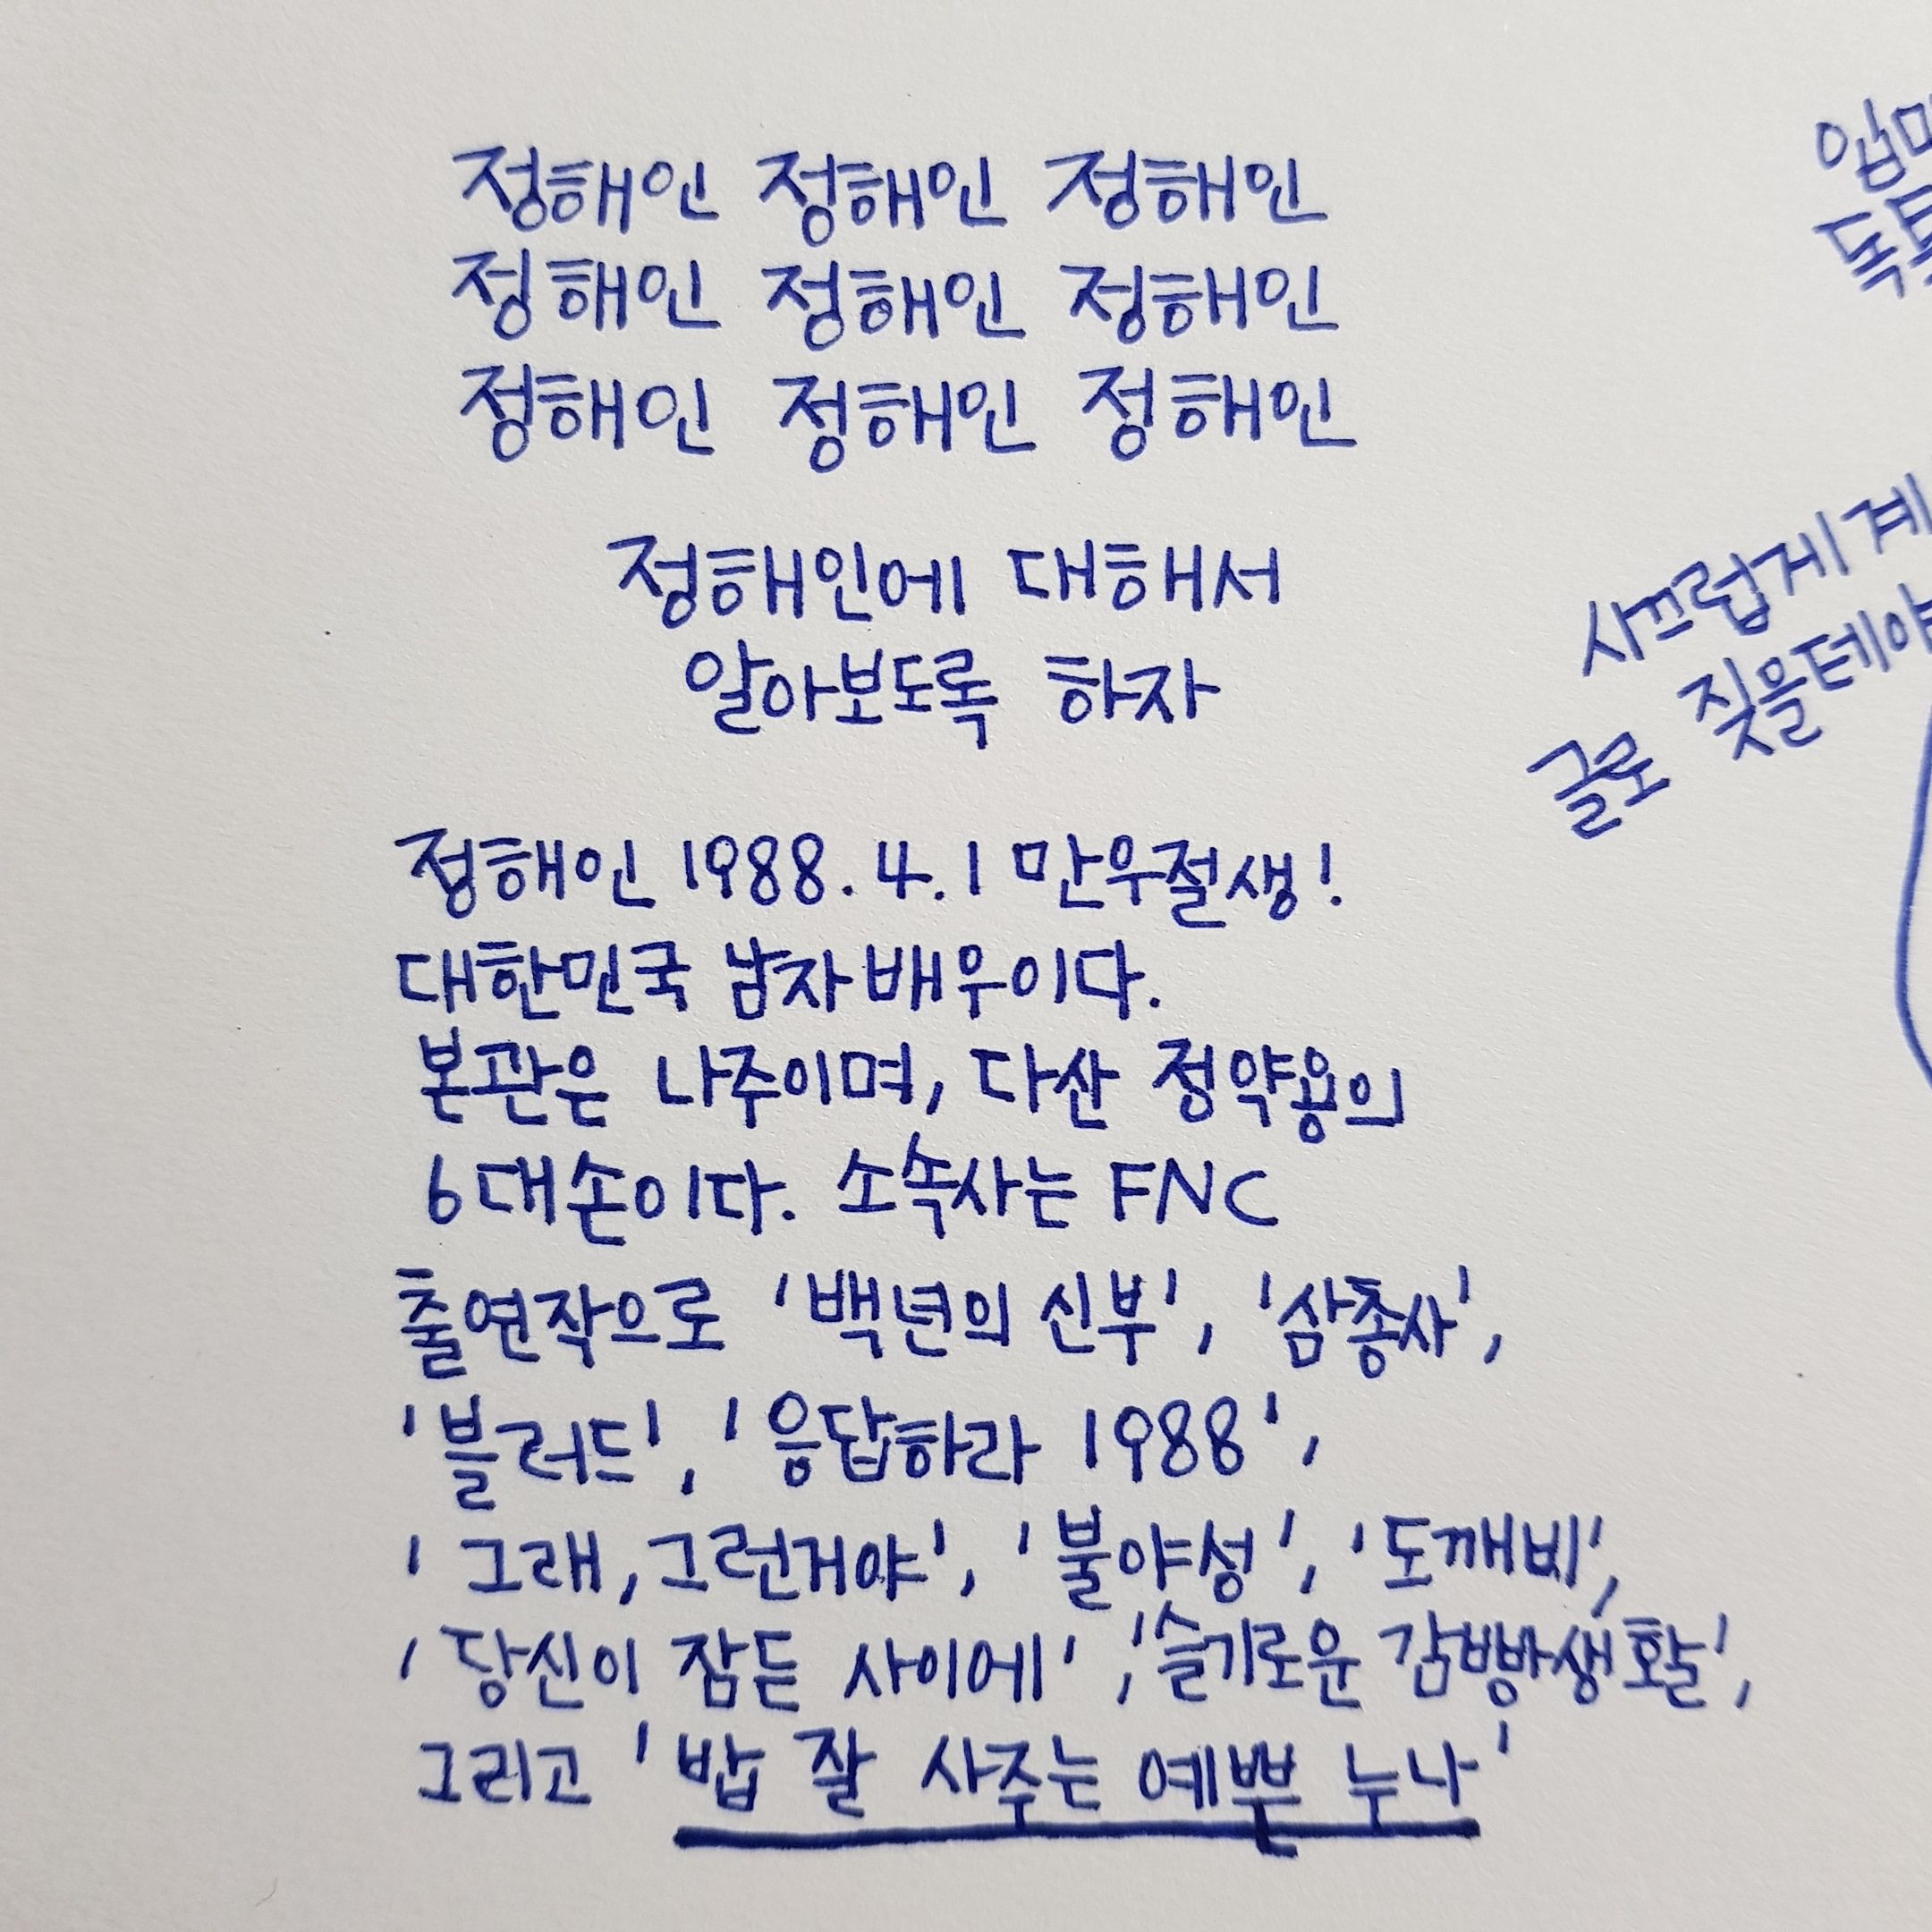 정해인 정해인 정해인
정해인 정해인 정해인
정해인 정해인 정해인
정해인에 대해서
알아보도록 하자
정해인 1988. 4. 1 만우절생!
대한민국 남자배우이다.
본관은 나주이며, 다산 정약용의
6대손이다. 소속사는 FNC
출연작으로 '백년의 신부', '삼총사',
'블러드', '응답하라 1988',
'그래, 그런거야', '불야성', '도깨비',
'당신이 잠든 사이에', '슬기로운 감빵생활',
그리고 '밥 잘 사주는 예쁜 누나'
시끄럽게 계
짖을테야
글로